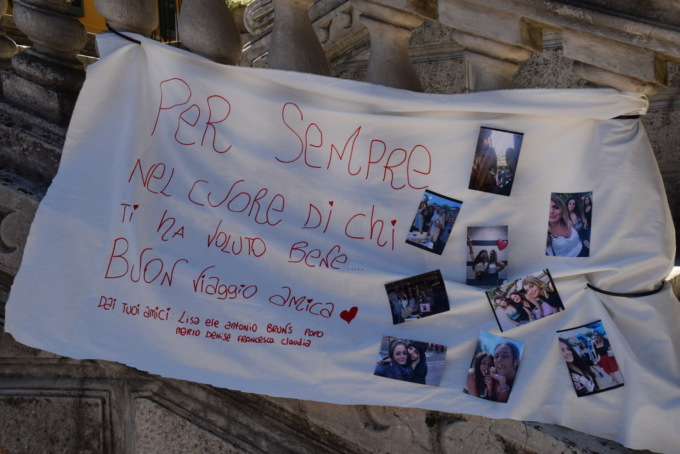 PER SEMPRE
NEL CUORE DI CHI
TI HA VOLUTO BENE.....
BUON viaggio amica
DAI TUOI AMICI: LISA ELE ANTONIO BRUNS POPO
MARIO DENISE FRANCESCA CLAUDIA